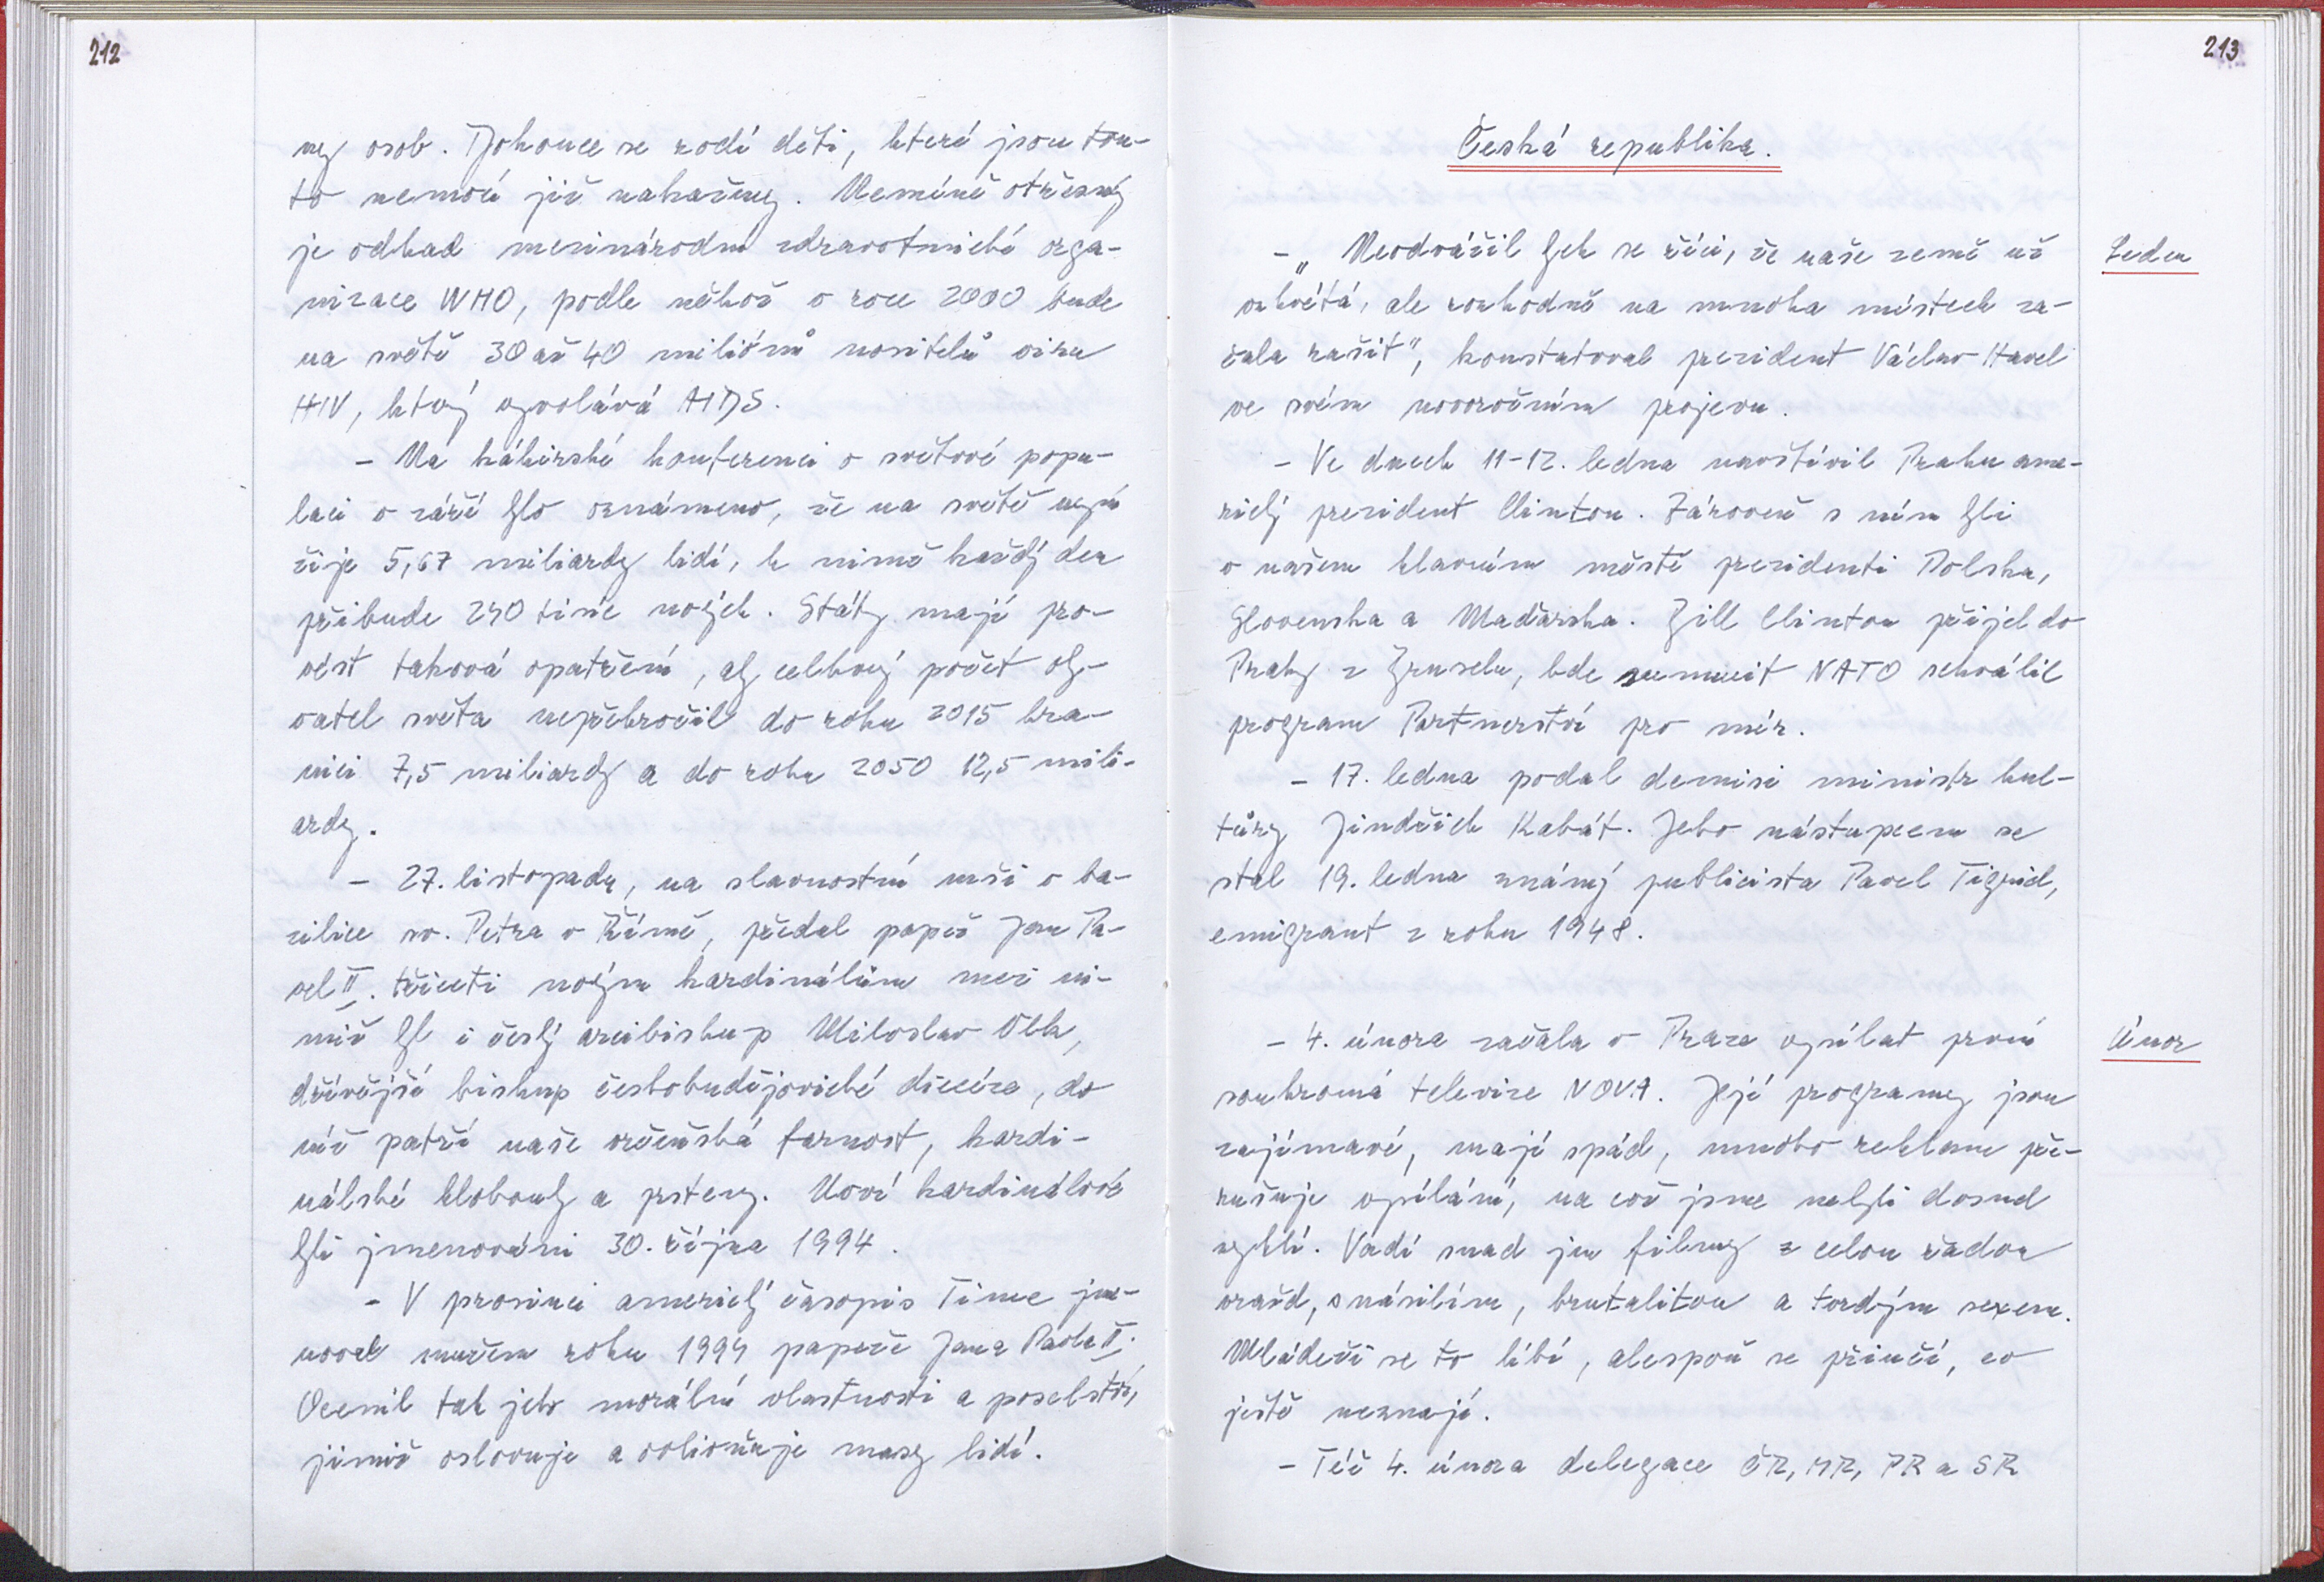 212
ny osob. Dokonce se rodí děti, které jsou tou-
to nemocí již nakaženy. Neméně otřesný
je odhad mezinárodní zdravotnické orga-
nizace WHO, podle něhož v roce 2000 bude
na světě 30 až 40 miliónů nositelů viru
HIV, který vyvolává AIDS.
– Na káhirské konferenci o světové popu-
laci v září bylo oznámeno, že na světě nyní
žije 5,67 miliardy lidí, k nimž každý den
přibude 240 tisíc nových. Státy mají pro-
vést taková opatření, aby celkový počet oby-
vatel světa nepřekročil do roku 2015 hra-
nici 7,5 miliardy a do roku 2050 12,5 mili-
ardy.
– 27. listopadu, na slavnostní mši v ba-
zilice sv. Petra v Římě, předal papež Jan Pa-
vel II. třiceti novým kardinálům mezi ni-
miž byl i český arcibiskup Miloslav Vlk,
dřívější biskup českobudějovické diecéze, do
níž patří naše farnost, kardi-
nálské klobouky a prsteny. Noví kardinálové
byli jmenováni 30. října 1994.
– V prosinci americký časopis Time jme-
noval mužem roku 1994 papeže Jana Pavla II.
Ocenil tak jeho morální vlastnosti a poselství,
jimiž oslovuje a ovlivňuje masy lidí.
213
Česká republika.
Leden
– „Neodvážil bych se říci, že naše země už
vzkvétá, ale rozhodně na mnoha místech za-
čala rašit", konstatoval prezident Václav Havel
ve svém novoročním projevu.
– Ve dnech 11–12. ledna navštívil Prahu ame-
rický prezident Clinton. Zároveň s ním byli
v našem hlavním městě prezidenti Polska,
Slovenska a Maďarska. Bill Clinton přijel do
Prahy z Bruselu, kde summit NATO schválil
program Partnerství pro mír.
– 17. ledna podal demisi ministr kul-
tury Jindřich Kabát. Jeho nástupcem se
stal 19. ledna známý publicista Pavel Tigrid,
emigrant z roku 1948.
Únor
– 4. února začala v Praze vysílat první
soukromá televize NOVA. Její programy jsou
zajímavé, mají spád, mnoho reklam pře-
rušuje vysílání, na což jsme nebyli dosud
zvyklí. Vadí snad jen filmy s celou řadou
vražd, s násilím, brutalitou a tvrdým sexem.
Mládeži se to líbí, alespoň se přiučí, co
ještě neznají.
– Též 4. února delegace ČR, MR, PR a SR